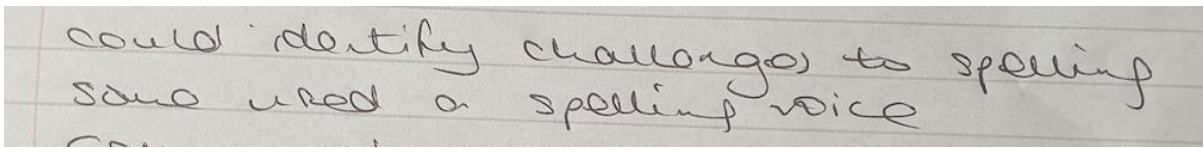 could identify challenges to spelling
some used a spelling voice